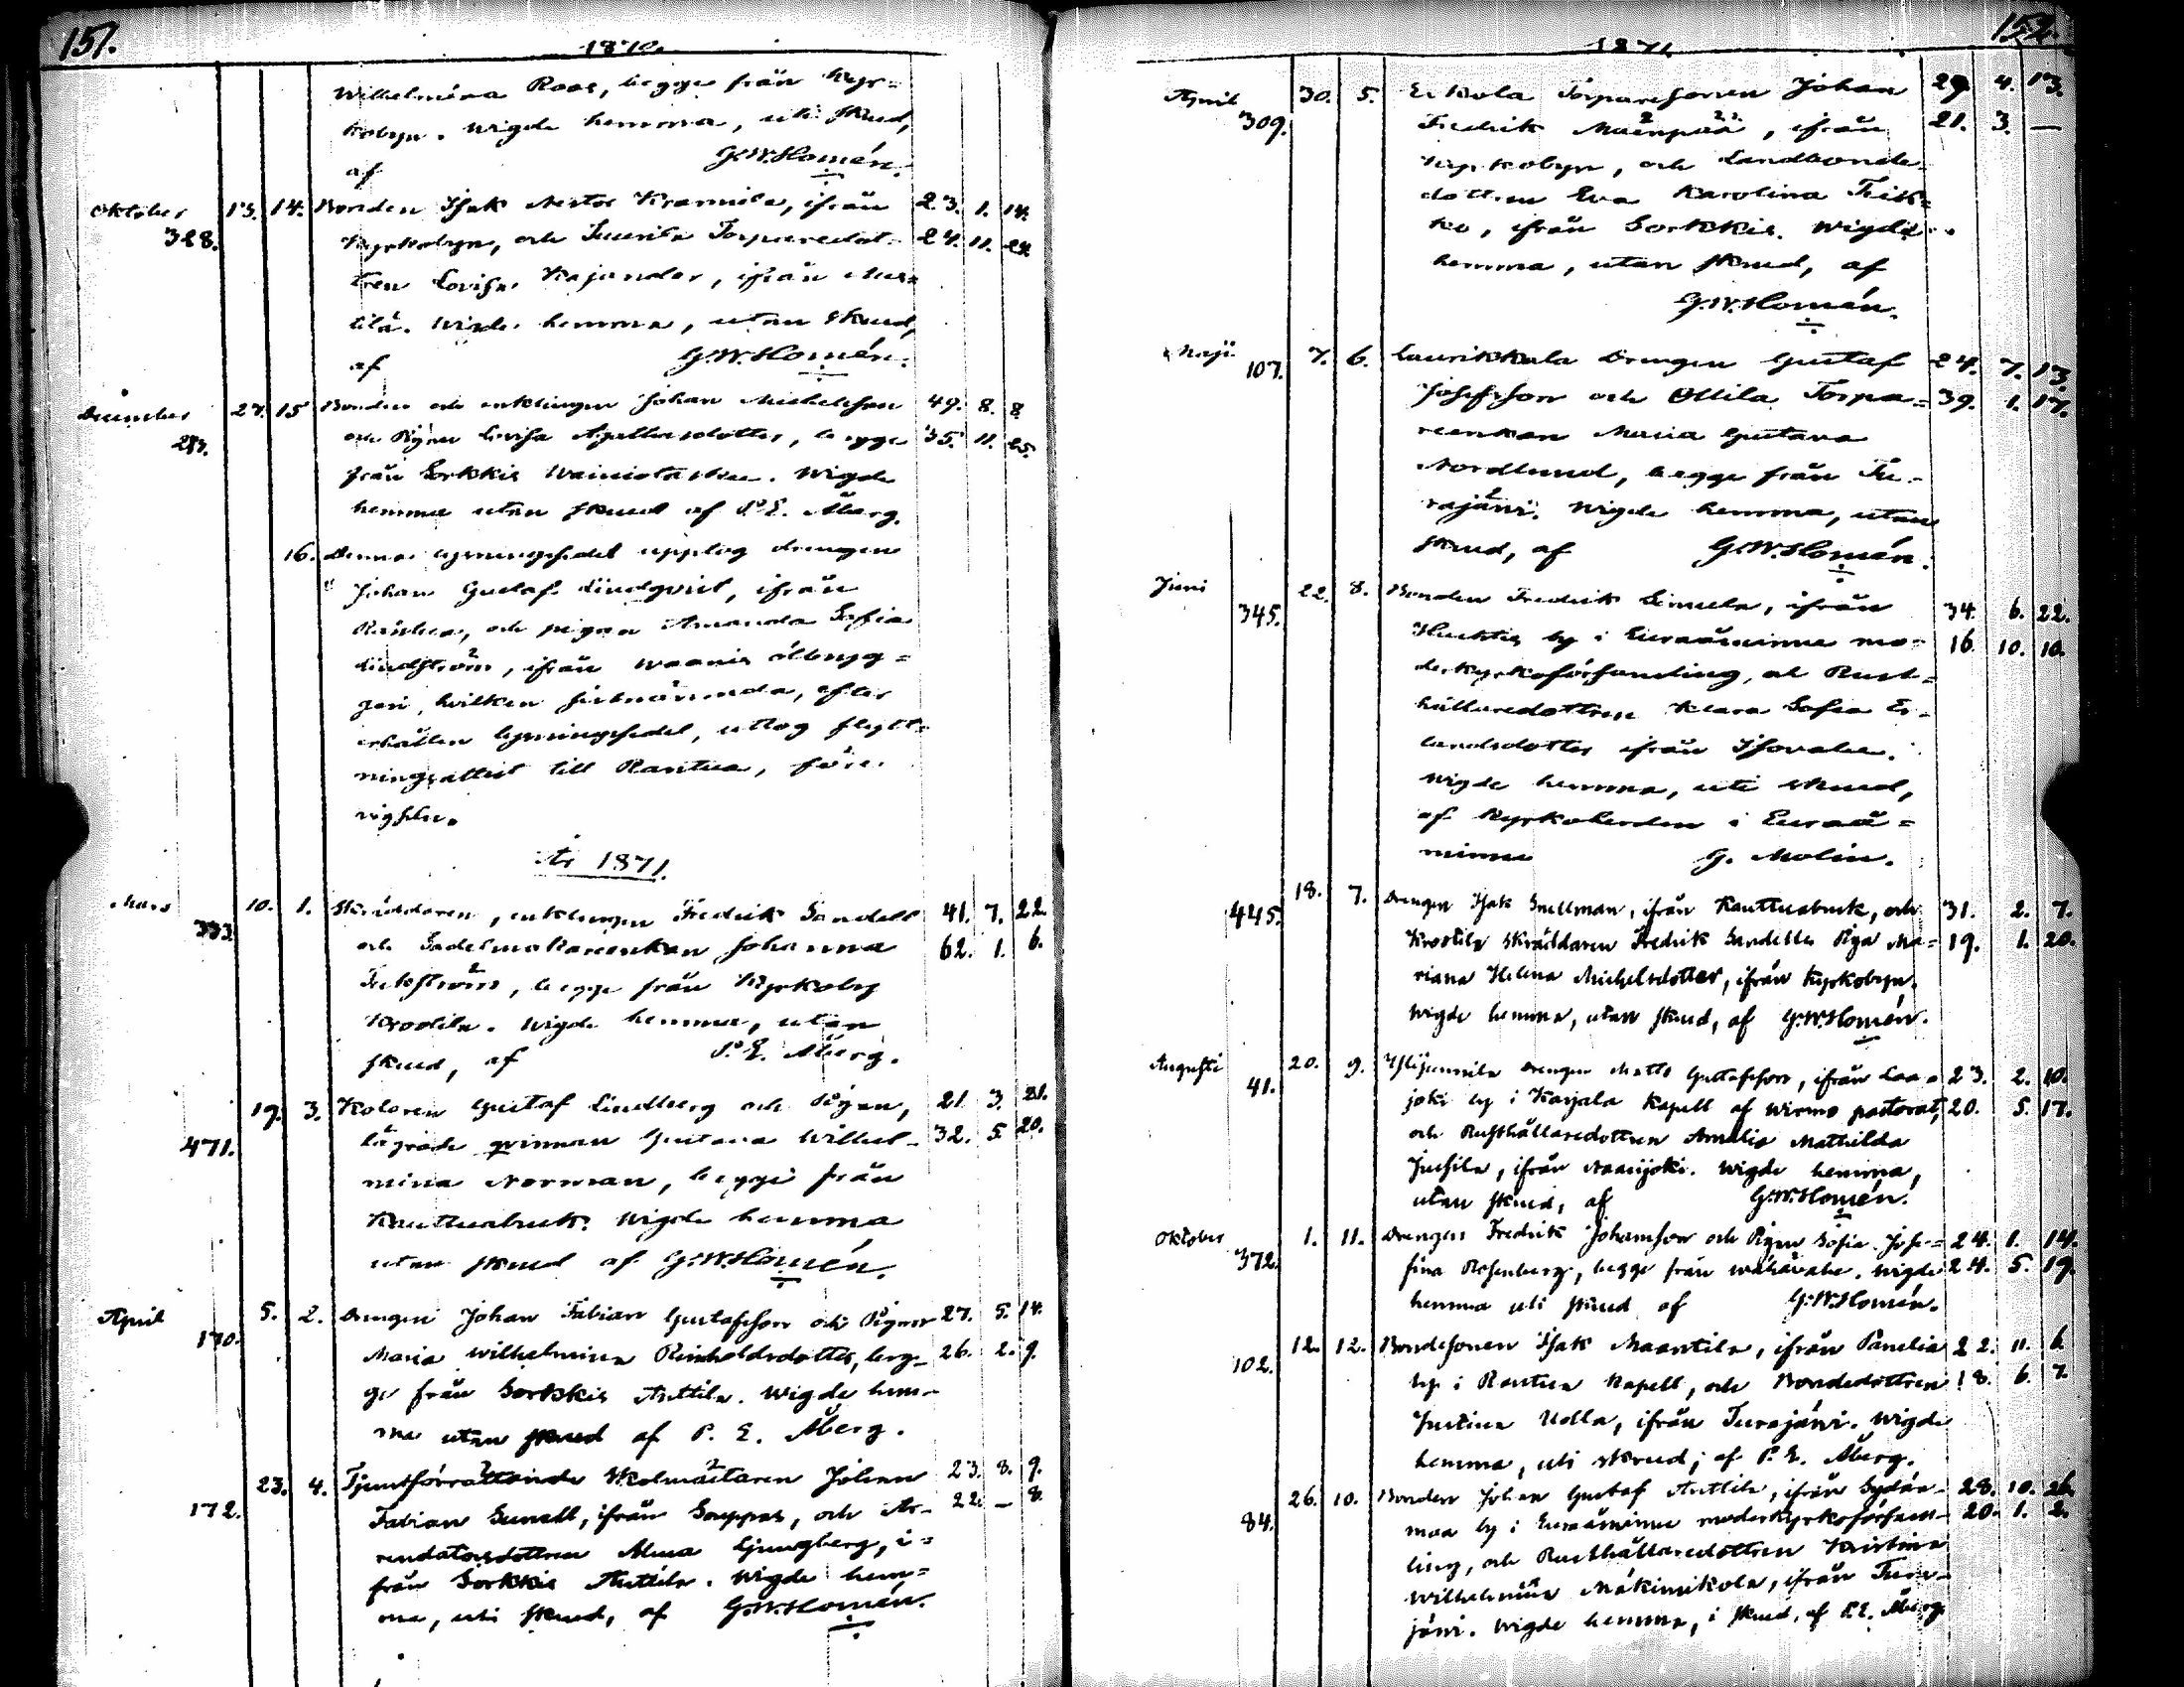 151.
1870.
Wilhelmina Roos, begge från Kyr=
kobyn. Wigde hemma, uti skrud,
af G.W. Homén.
Oktober 328. 13. 14. Bonden Isak Nestor Krannila, ifrån 23. 1. 14.
Kyrkobyn, och Torparedot- 24. 11. 24.
tren Lovisa Kajander, ifrån
Wigde hemma, utan skrud,
af G.W. Homén.
December 27. 15 Bonden och enklingen Johan Michelsson 49. 8. 8.
och Pigan Lovisa begge 35. 11. 25.
från Sorkkis Wigde
hemma utan skrud af P.E. Åberg.
16. Denna lysningssedel uttog drengen
Johan Gustaf Lindqvist, ifrån
och pigan Amanda Sofia
Lindström, ifrån
hvilken förbnämnda, efter
erhållen lysningssedel, uttog flytt=
ningsattest till

År 1871.
Mars 333. 10. 1. Skräddaren, enklingen Fredrik Sandell 41. 7. 22.
och Sadelmakareenkan Johanna 62. 1. 6.
begge från Kyrkoby
Krostila. Wigde hemma, utan
skrud, af P.E. Åberg.
471. 19. 3. Kolaren Gustaf Lindberg och Pigan, 21. 3. 21.
lägrade qvinnan Gustava Wilhel- 32. 5. 20.
mina Norman, begge från
Kauttuabruk. Wigde hemma
utan skrud af G.W. Homén.
April 170. 5. 2. Drengen Johan Fabian Gustafsson och Pigan 27. 5. 14.
Maria Wilhelmina Reinholdsdotter, beg- 26. 2. 9.
ge från Sorkkis Anttila. Wigde hem-
ma utan skrud af P. E. Åberg.
172. 23. 4. Tjenstförrättande Skolmästaren Johan 23. 8. 9.
Fabian Sunell, ifrån och Ar- 22. — 8.
rendatorsdottren Alma Ljungberg, i=
från Sorkkis Anttila. Wigde hem=
ma, uti skrud, af G.W. Homén.
152.
1871.
April 309. 30. 5. Erkola Torparesonen Johan 29. 4. 13.
Fredrik Mäenpää, ifrån 21. 3. —
Kyrkobyn, och Landbonde=
dottren Eva Karolina
ifrån Sorkkis. Wigde
hemma, utan skrud, af
G.W. Homén.
Maji 107. 7. 6. Laurikkala Drengen Gustaf 24. 7. 13.
Josefsson och Ollila Torpa= 39. 1. 17.
reenkan Maria Gustava
Nordlund, begge från Tu-
rajärvi. Wigde hemma, utan
skrud, af G.W. Homén.
Juni 345. 22. 8. Bonden Fredrik Simula, ifrån 34. 6. 22.
by i Euraåminne mo= 16. 10. 10.
derkyrkoförsamling, och Rust=
hållaredottren Klara Sofia Er-
landsdotter ifrån
Wigde hemma, uti skrud,
af Kyrkoherden i Euraå=
minne G. Molin.
445. 18. 7. Drengen Isak Snellman, ifrån Kauttuabruk, och 31. 2. 7.
Krostila Skräddaren Fredrik Sandells Piga Ma= 19. 1. 20.
riana Helena Michelsdotter, ifrån Kyrkobyn.
Wigde hemma, utan skrud, af G.W. Homén.
Augusti 41. 20. 9. Drengen Matts Gustafsson, ifrån Laa= 23. 2. 10.
joki by i Karjala Kapell af Wirmo pastorat, 20. 5. 17.
och Rusthållaredottren Amalia Mathilda
Jussila, ifrån Naarijoki. Wigde hemma,
utan skrud, af G.W. Homén.
Oktober 372. 1. 11. Drengen Fredrik Johansson och Pigan Sofia Jose= 24. 1. 14.
fina Rosenberg, begge från Wigde 24. 5. 19.
hemma uti skrud af G.W. Homén.
102. 12. 12. Bondesonen Isak Maantila, ifrån Panelia 22. 11. 6.
by i Kapell, och Bondedottren 18. 6. 7.
Justina Uolla, ifrån Turajärvi. Wigde
hemma, uti skrud, af P. E. Åberg.
84. 26. 10. Bonden Johan Gustaf Anttila, ifrån Sydän- 28. 10. 26.
maa by i Euraåminne moderkyrkoförsam- 20. 1. 2.
ling, och Rusthållaredottren Kristina
Wilhelmina Mäkimikola, ifrån Tura-
järvi. Wigde hemma, i skrud, af P.E. Åberg